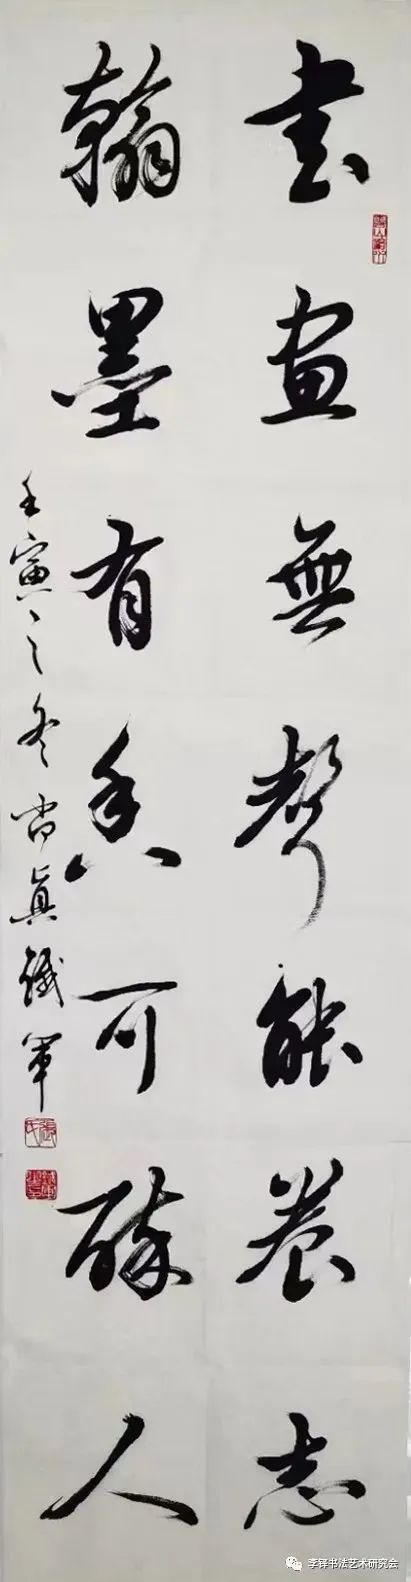 書画無声能养志
翰墨有香可醉人
壬寅之冬尚真鐵軍
李铎书法艺术研究会